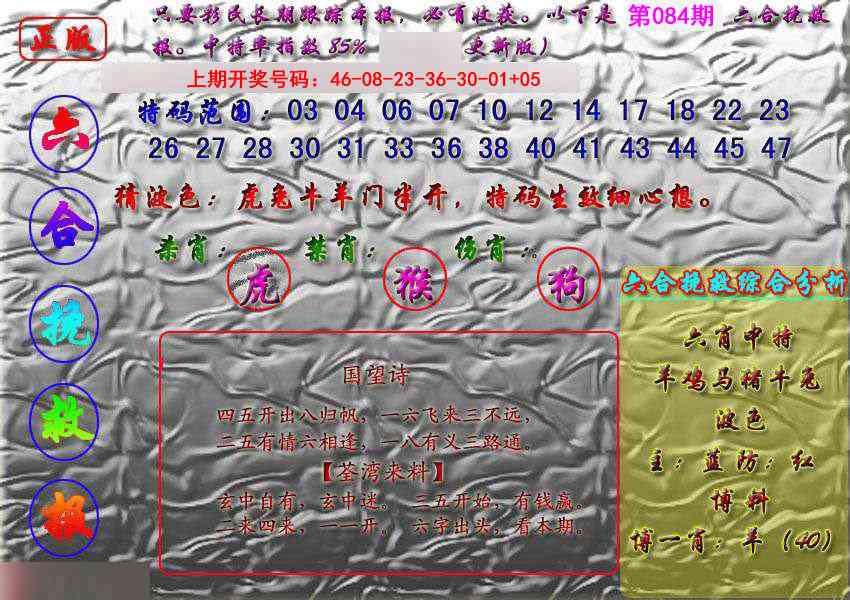 正版
只要彩民长期跟踪本报，必有收获。以下是 第084期 六合挽救
报。中特率指数85% 更新版）
上期开奖号码：46-08-23-36-30-01+05
特码范围：03 04 06 07 10 12 14 17 18 22 23
26 27 28 30 31 33 36 38 40 41 43 44 45 47
猜波色：虎兔牛羊门半开，特码生效细心想。
杀肖： 禁肖： 伤肖：
虎 猴 狗
六
合
挽
救
报
国望诗
四五开出八归帆，一六飞来三不远，
三五有情六相逢，一八有义三路通。
【荃湾来料】
玄中自有，玄中迷。 三五开始，有钱赢。
二来四来，一一开。 六字出头，看本期。
六合挽救综合分析
六肖中特
羊鸡马猪牛兔
波色
主：蓝防：红
博料
博一肖：羊（40）